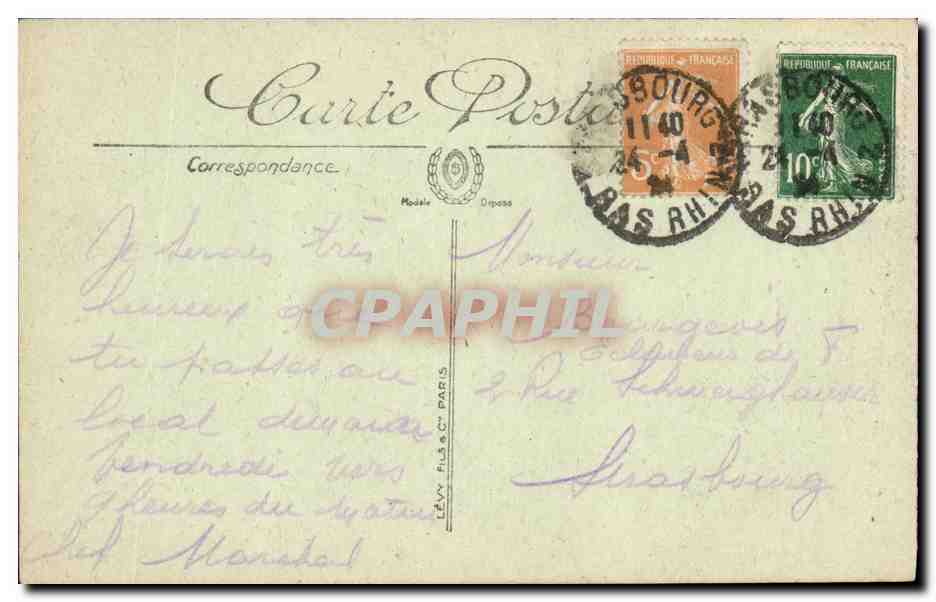 Carte Postale
REPUBLIQUE FRANÇAISE
5c
REPUBLIQUE FRANÇAISE
10c
STRASBOURG
11 40
24 -4
BAS RHIN
STRASBOURG
11 40
24 -4
BAS RHIN
Correspondance
Modèle Déposé
LÉVY FILS & Cie PARIS
Je serais très
heureux que
tu passes au
local demain
Vendredi vers
9 heures du matin
Maréchal
Monsieur
Bourgeois
Eclaireurs de F
2 Rue Schweighauser
Strasbourg
CPAPHIL